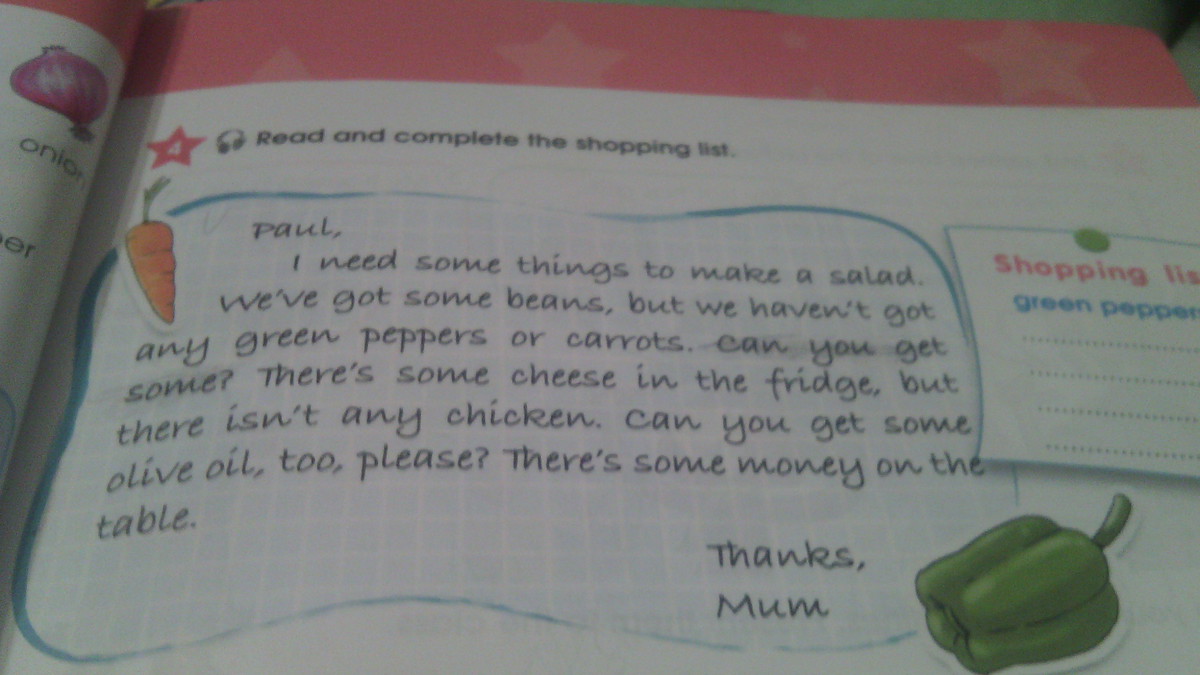 onion
er
4 Read and complete the shopping list.
Paul,
I need some things to make a salad.
We've got some beans, but we haven't got
any green peppers or carrots. Can you get
some? There's some cheese in the fridge, but
there isn't any chicken. Can you get some
olive oil, too, please? There's some money on the
table.
Thanks,
Mum
Shopping lis
green pepper